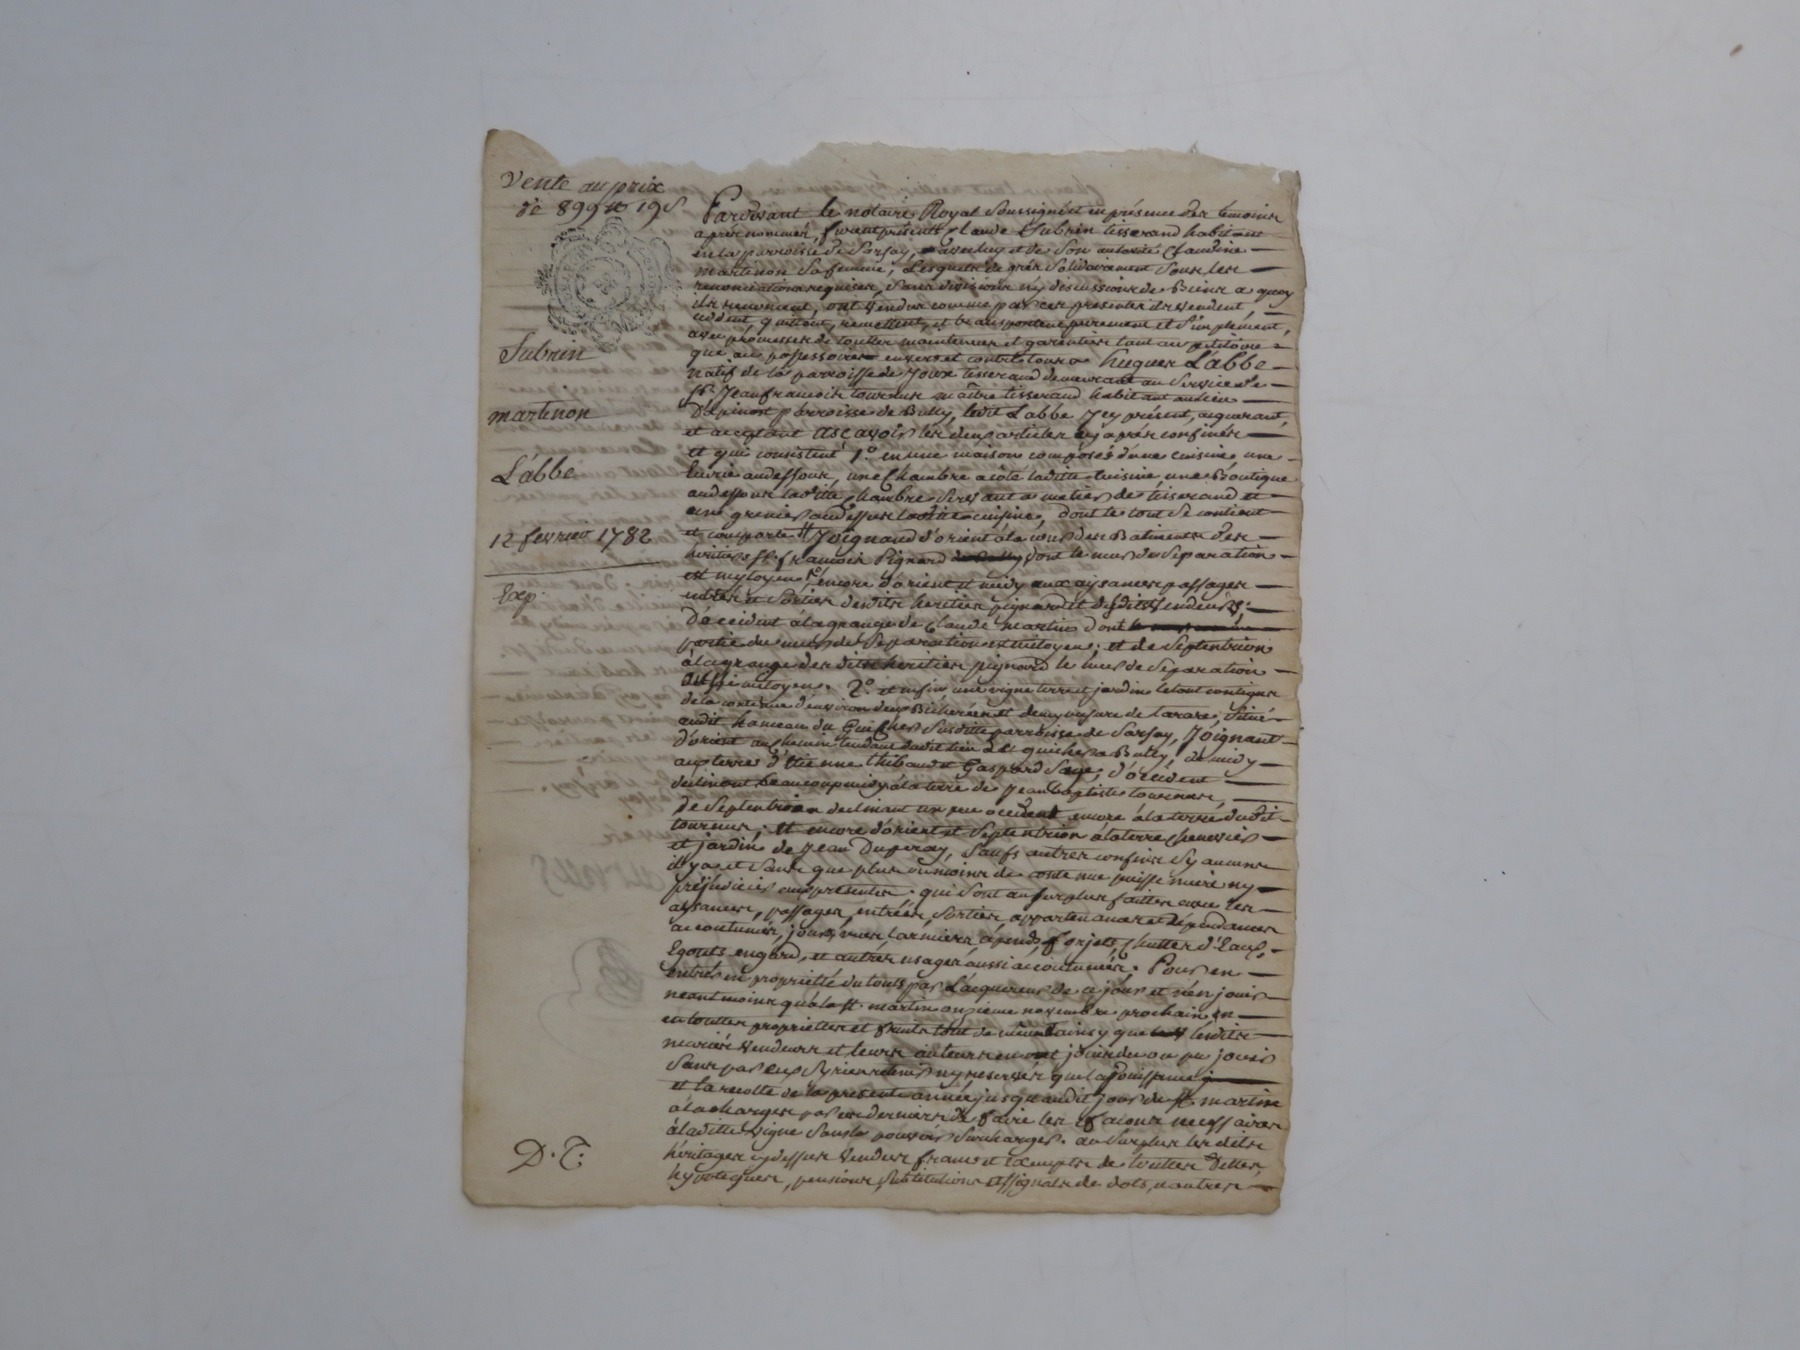 Vente au prix
de 899 ₶ 19 s
Subrin
martinon
L'abbe
12 fevrier 1782
Exp.
Pardevant le notaire Royal soussigné et en présence des temoins
aprés nommés, furent présents Claude Subrin tisserand habitant
en la parroisse de Sarsay, et de son autorité Claudine
martinon sa femme, lesquels de gré solidairement sous les
renonciations requises, sans division ny discussion de Biens a quoy
ils renoncent, ont vendu comme par ces presentes ils vendent,
cedent, quittent, remettent, et transportent purement et simplement,
avec promesses de toutter maintenue et garentie tant au petitoire
que au possessoire envers et contre tous a hugues L'abbe
natif de la parroisse de Joux tisserand demeurant au service de
sr. Jean francois tourneur maître tisserand habitant au lieu
D'apinost parroisse de Bully, ledit Labbe Icy présent, acquerant,
et acceptant ascavoir les deux articles cy aprés confinés
et qui consistent 1.° en une maison composée d'une cuisine une
Ecurie au dessous, une Chambre a côté laditte cuisine, une Boutique
au dessous laditte chambre servant a metier de tisserand et
un grenier au dessus laditte cuisine, dont le tout se contient
et comporte Joignant d'orient à la cour des Batiments des
heritiers sr. francois Pignard dont le mur de separation
est mitoyen, encore d'orient et midy aux aysances passages
entrées et sorties desdits heritiers pignard et desdits vendeurs;
D'occident à la grange de Claude martin dont
partie du mur de separation est mitoyen; et de septentrion
à la grange desdits heritiers pignard le mur de separation
aussi mitoyen. 2.° et enfin une vigne terre et jardin le tout contigus
de la contenue d'environ deux Bicherées et demy mesure de tarare, situé
audit hameau du Guicher susditte parroisse de Sarsay, Joignant
d'orient au chemin tendant dudit lieu de Guicher a Bully, de midy
aux terres d'Etienne thibaud et Gaspard Sage, d'occident
declinant beaucoup midy à la terre de Jean Baptiste tourneur,
de septentrion declinant un peu occident encore à la terre dudit
tourneur; et encore d'orient et septentrion à la terre cheneviere
et jardin de Jean Duperay, saufs autres confins sy aucuns
il y a et sans que plus ou moins de contenue puisse nuire ny
préjudicier aux presentes, qui sont au surplus faittes avec les
aysances, passages, entrées, sorties, appartenances et dépendances
accoutumés, jours, vues, larmiers, apends, forjets, chuttes d'Eaux,
Egouts, engard, et autres usages aussi accoutumés. Pour en
entrer en propriété du tout par l'acquereur de ce jour et n'en jouir
neantmoins qu'à la St. martin onzieme novembre prochain
en touttes proprietes et fruits tout de même ainsy que lesdits
mariés vendeurs et leurs auteurs en ont joui du ou pu jouir
sans par eux sy rien retenir ny reserver que la jouissance
et la recolte de la presente année jusqu'audit jour de St. martin
à la charge par ces derniers de faire les façons necessaires
à laditte vigne sans la pouvoir surcharger. au surplus lesdits
héritages cy dessus vendus francs et exempts de touttes Dettes,
hypoteques, pensions, substitutions assignats de dots, et autres
D. T.